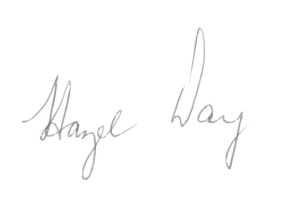 Hazel Day